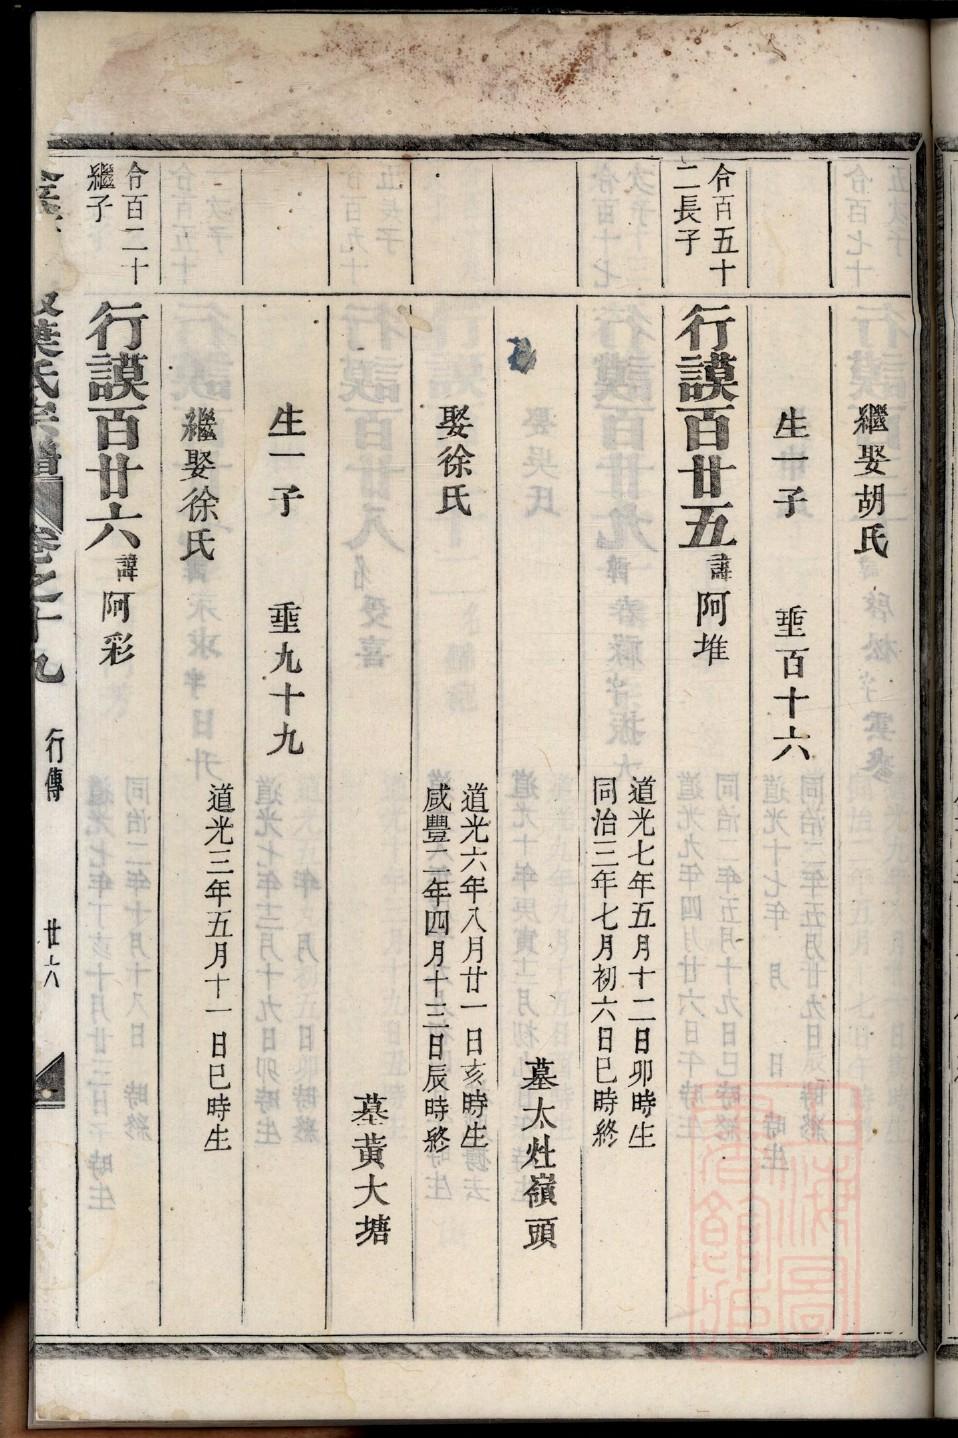 繼娶胡氏
生一子 垂百十六
令百五十
二長子
行謨百廿五 諱阿堆
道光七年五月十二日卯時生
同治三年七月初六日巳時終
墓太灶嶺頭
娶徐氏
道光六年八月廿一日亥時生
咸豐二年四月十三日辰時終
墓黃大塘
生一子 垂九十九
繼娶徐氏
道光三年五月十一日巳時生
令百二十
繼子
行謨百廿六 諱阿彩
葉氏宗譜 卷之十九 行傳 廿六